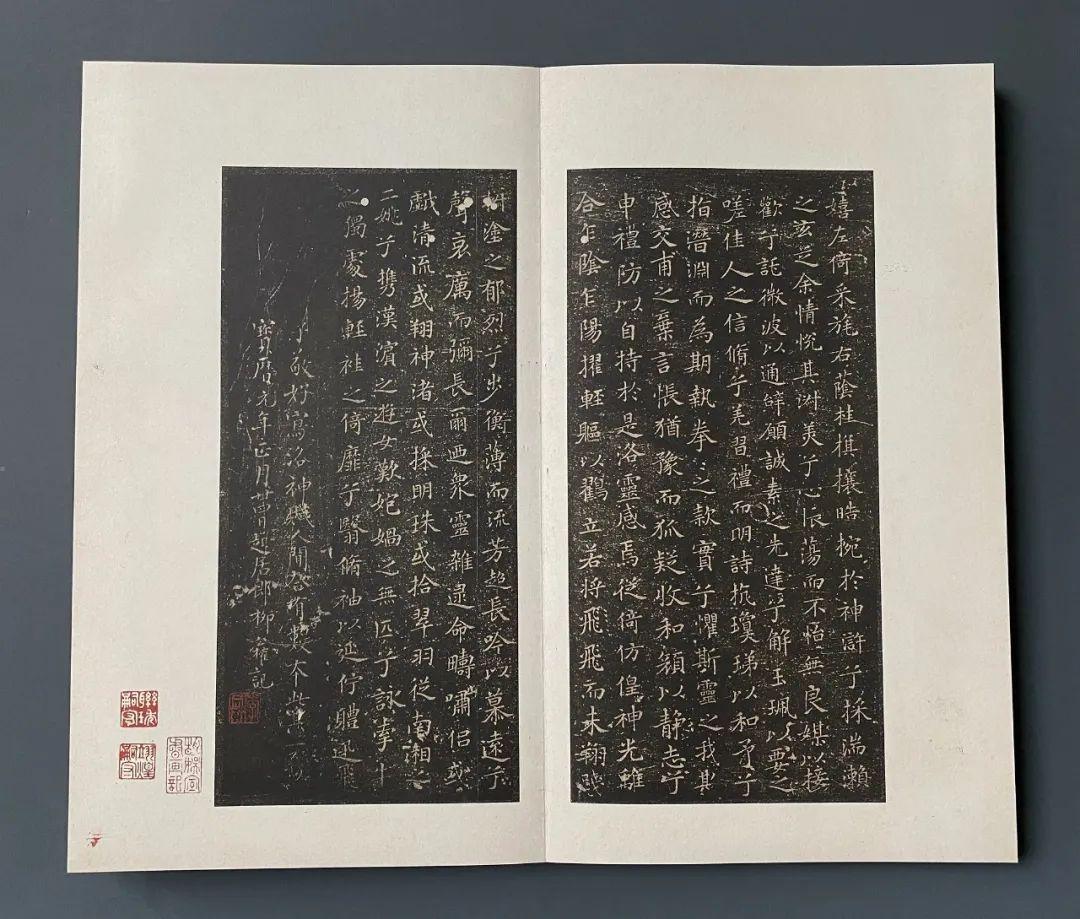 嬉左倚采旄右蔭桂棋攘晧捥於神滸兮採湍瀨
之玄芝余情悅其淑美兮心振蕩而不怡無良媒以接
歡兮託微波以通辭願誠素之先達兮解玉珮以要之
嗟佳人之信脩兮羌習禮而明詩抗瓊珶以和予兮
指潛淵而為期執拳〻之款實兮懼斯靈之我欺
感交甫之棄言悵猶豫而狐疑收和顏以静志兮
申禮防以自持於是洛靈感焉徙倚仿偟神光離
合乍陰乍陽擢輕軀以鶴立若將飛飛而未翔踐
塗之郁烈兮步衡薄而流芳超長吟以慕遠兮
聲哀厲而彌長爾迺衆靈雜遝命疇嘯侣或
戲清流或翔神渚或採明珠或拾翠羽從南湘之
二姚兮携漢濱之遊女歎妃媧之無匹兮詠牽牛
之獨處揚輕袿之倚靡兮翳脩袖以延佇體迅飛
敬好寫洛神賦人間合有數本此其一
寶曆元年正月起居郎柳記